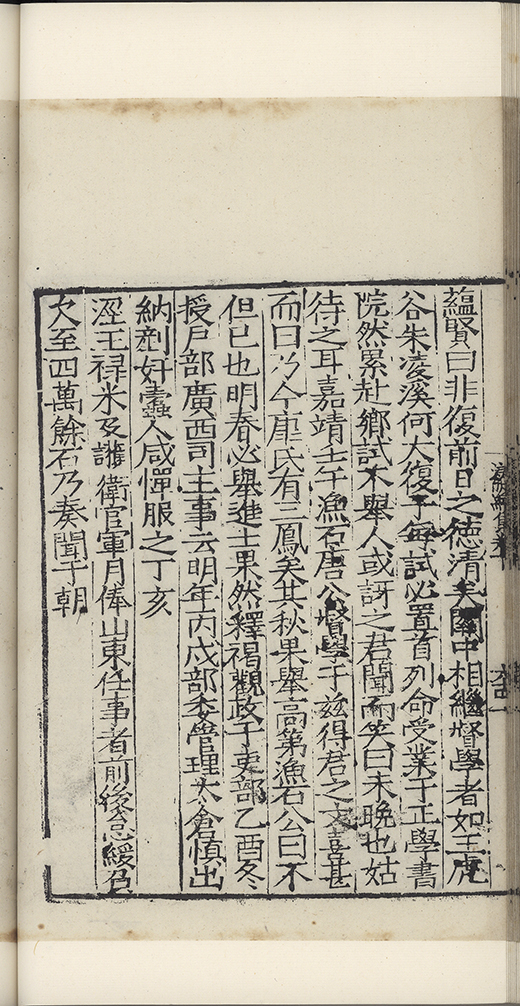 蘊賢曰非復前日之德清矣關中相繼督學者如王虎
谷朱凌溪何大復予每試必置首列命受業于正學書
院然累赴鄉試不舉人或訝之君聞而笑曰未晚也姑
待之耳嘉靖壬午漁石唐公督學于兹得君之文喜甚
而曰乃今康氏有三鳳矣其秋果舉高第漁石公曰不
但已也明春必舉進士果然釋褐觀政于吏部乙酉冬
授戶部廣西司主事云明年丙戌部委管理太倉慎出
納剂奸蠹人咸憚服之丁亥
涇王禄米及護衛官軍月俸山東任事者前後怠緩負
欠至四萬餘石乃奏聞于朝